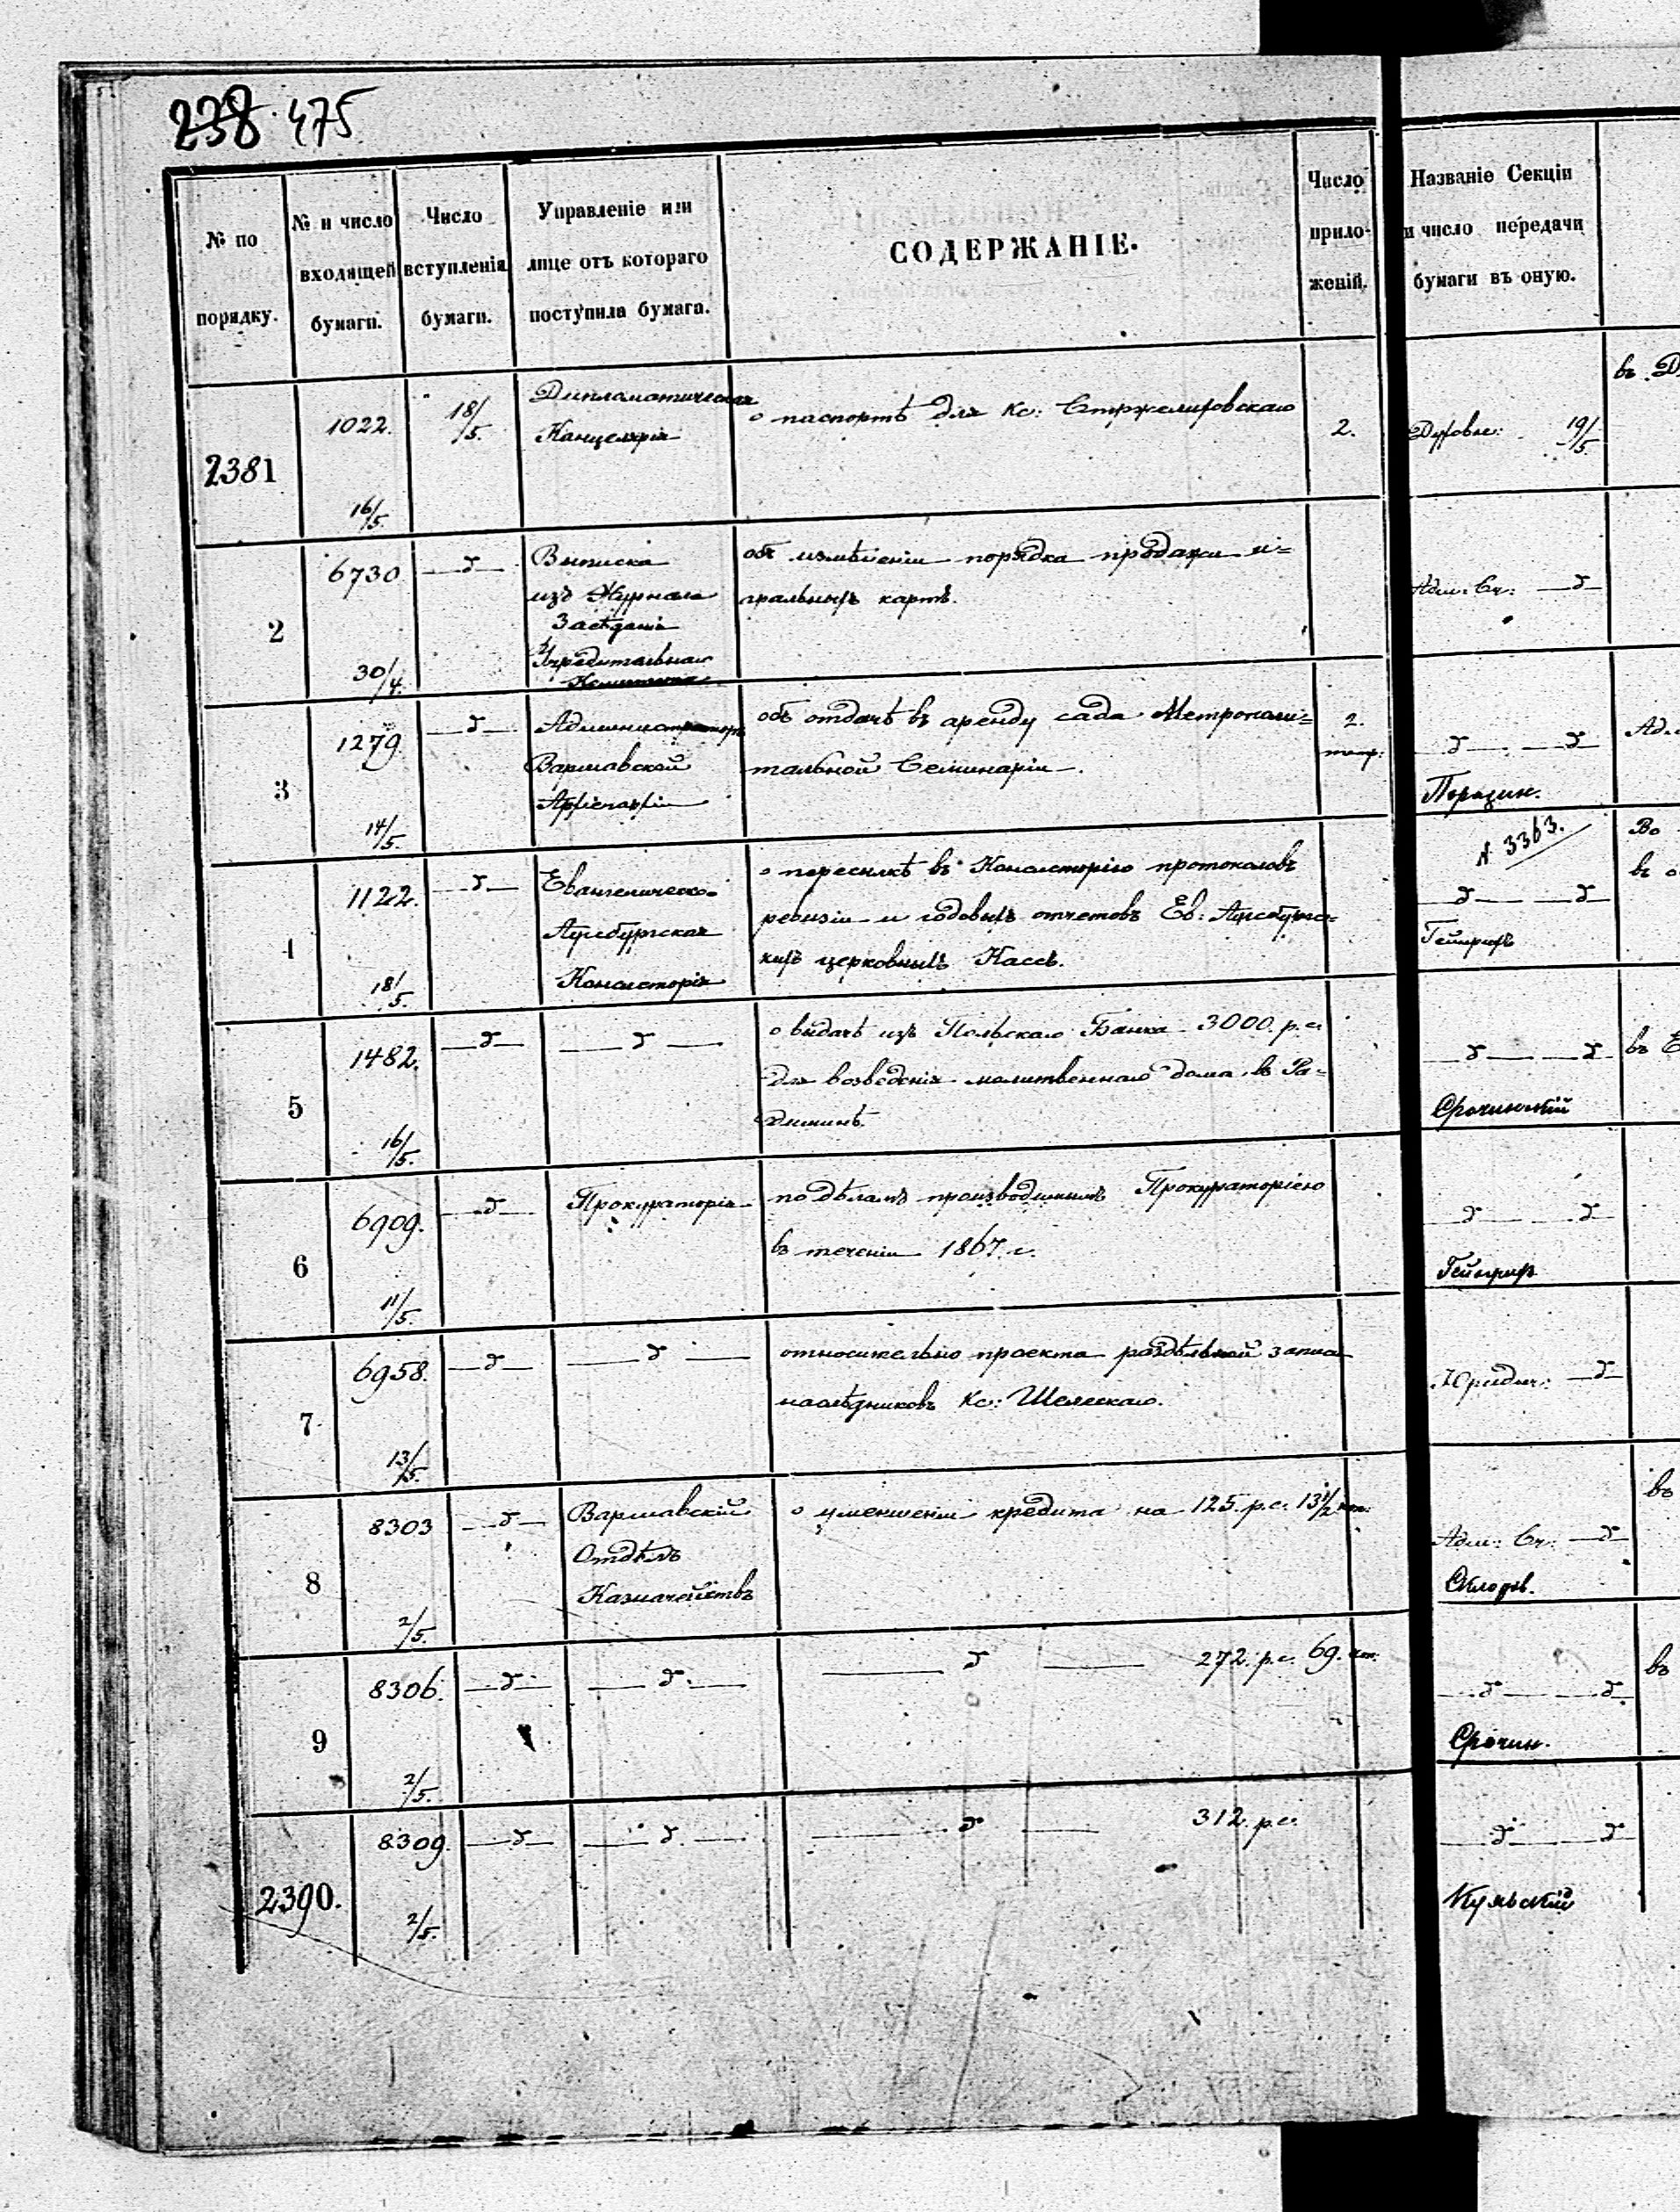 238 475
№ по порядку.
№ и число входящей бумаги.
Число вступленія бумаги.
Управленіе или лице отъ котораго поступила бумага.
СОДЕРЖАНІЕ.
Число приложеній.
Названіе Секціи и число передачи бумаги въ оную.
2381
1022.
16/5.
18/5.
Дипломатическая
Канцелярія
о паспортѣ для Кс: Стржелиховскаго
2.
Духовн: 19/5.
въ Д
2
6730
30/4.
—д—
Выписка
изъ Журнала
Засѣданія
Учредительнаго
Комитета
объ измѣненіи порядка продажи и=
гральныхъ картъ.
Адм: Сч: —д
3
1279.
14/5.
—д—
Администраторъ
Варшавской
Архіепархіи
объ отдачѣ въ аренду сада Метрополи=
тальной Семинаріи.
2.
—д— —д
Поразин.
4
1122.
18/5.
—д—
Евангелическо-
Аугсбургская
Консисторія
о пересылкѣ въ Консисторію протоколовъ
ревизіи и годовыхъ отчетовъ Ев: Аугсбургс=
кихъ церковныхъ Кассъ.
N. 3363.
—д— —д
Гейнрихъ
Во
5
1482.
16/5.
—д—
—д—
о выдачѣ изъ Польскаго Банка 3000. р.с.
для возведенія молитвеннаго дома въ Ра=
—д— —д
Срочинскій
6
6909.
11/5.
—д—
Прокураторія
по дѣламъ производимымъ Прокураторіею
въ теченіи 1867. г.
—д— —д
Гейнрих
7
6958.
13/5.
—д—
—д—
относительно проекта раздѣльной записи
наслѣдниковъ Кс: Шелескаго.
Юридич: —д
8
8303
2/5.
—д—
Варшавскій
Отдѣлъ
Казначействъ
о уменшеніи кредита на 125. р.с. 13½ коп:
Адм: Сч: —д
въ
9
8306.
2/5.
—д—
—д—
—д— 272. р.с. 69. коп:
—д— —д.
Срочин.
въ
2390.
8309.
2/5.
—д—
—д—
—д— 312. р.с.
—д— —д
Кульскій